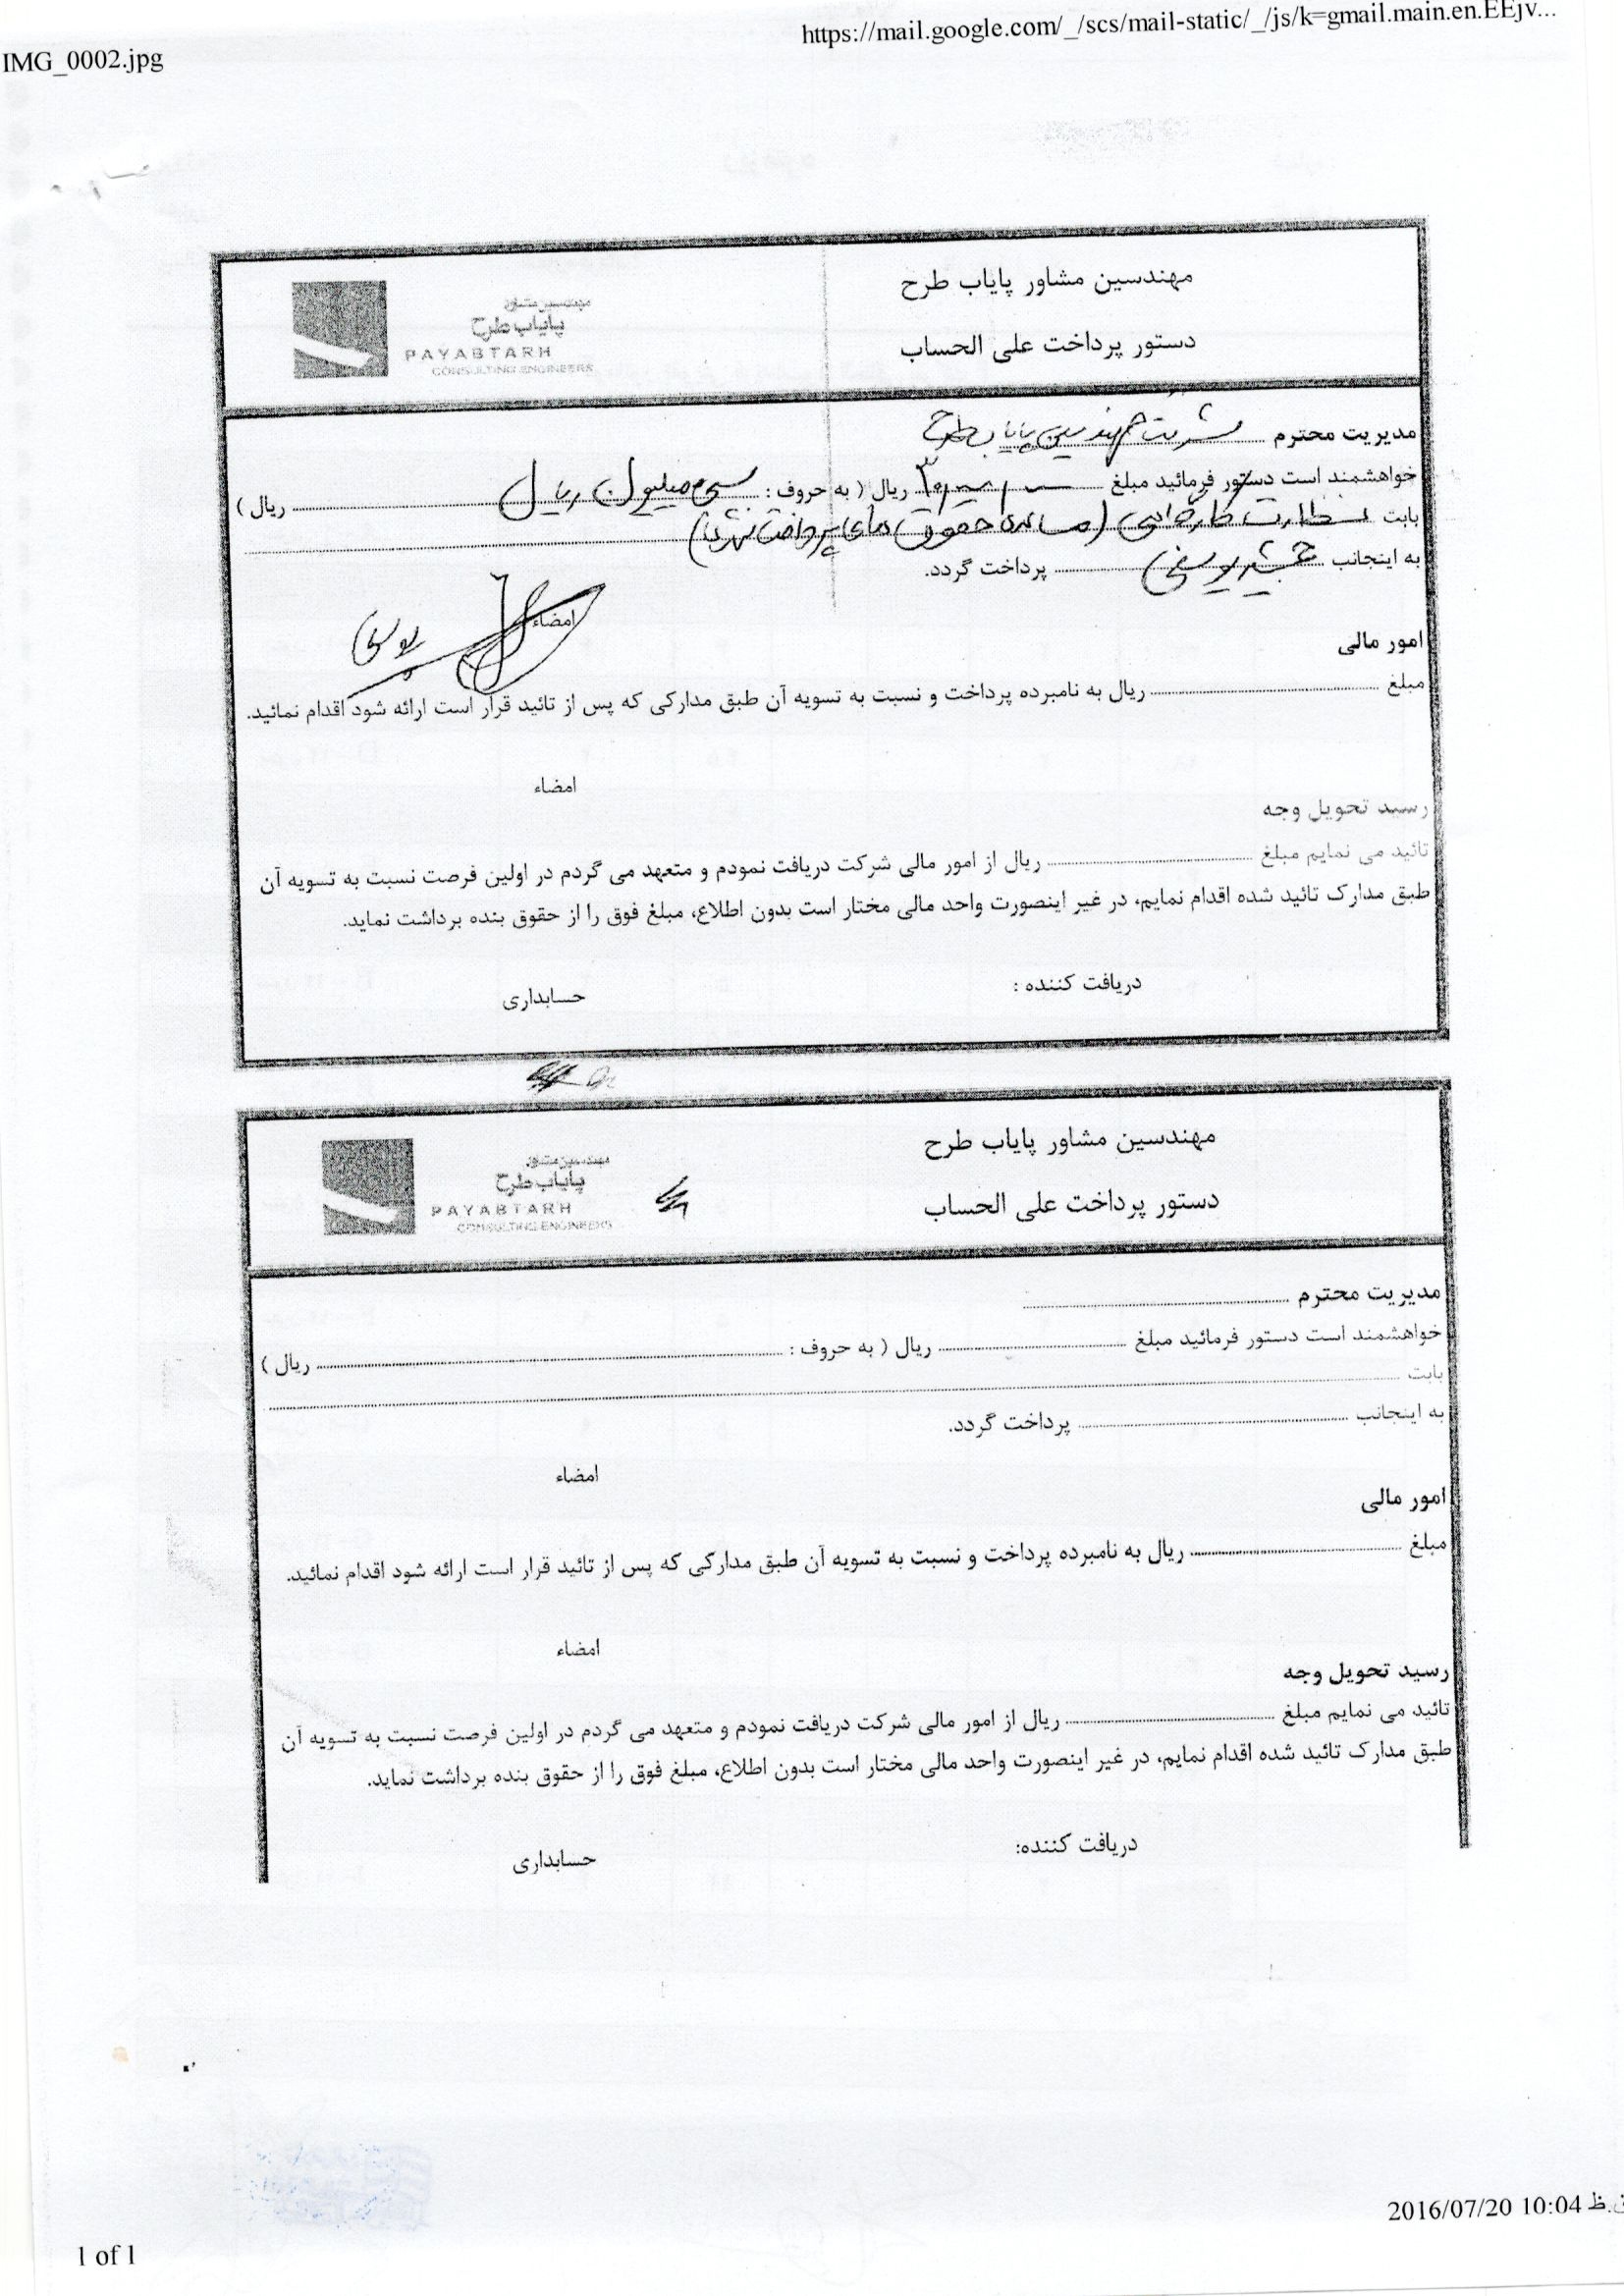 https://mail.google.com/_/scs/mail-static/_/js/k=gmail.main.en.EEjv...
IMG_0002.jpg
مهندسین مشاور پایاب طرح
دستور پرداخت علی الحساب
مهندسین مشاور
پایاب طرح
PAYABTARH
CONSULTING ENGINEERS
مدیریت محترم شرکت مهندسین پایاب طرح
خواهشمند است دستور فرمائید مبلغ ریال ( به حروف : سی میلیون ریال ریال )
بابت نظارت کارگاهی ( حقوق های پرداخت نشده )
به اینجانب جمشید یوسفی پرداخت گردد.
امضاء
یوسفی
امور مالی
مبلغ ریال به نامبرده پرداخت و نسبت به تسویه آن طبق مدارکی که پس از تائید قرار است ارائه شود اقدام نمائید.
امضاء
رسید تحویل وجه
تائید می نمایم مبلغ ریال از امور مالی شرکت دریافت نمودم و متعهد می گردم در اولین فرصت نسبت به تسویه آن
طبق مدارک تائید شده اقدام نمایم، در غیر اینصورت واحد مالی مختار است بدون اطلاع، مبلغ فوق را از حقوق بنده برداشت نماید.
دریافت کننده :
حسابداری
مهندسین مشاور پایاب طرح
دستور پرداخت علی الحساب
مهندسین مشاور
پایاب طرح
PAYABTARH
CONSULTING ENGINEERS
مدیریت محترم
خواهشمند است دستور فرمائید مبلغ ریال ( به حروف : ریال )
بابت
به اینجانب پرداخت گردد.
امضاء
امور مالی
مبلغ ریال به نامبرده پرداخت و نسبت به تسویه آن طبق مدارکی که پس از تائید قرار است ارائه شود اقدام نمائید.
امضاء
رسید تحویل وجه
تائید می نمایم مبلغ ریال از امور مالی شرکت دریافت نمودم و متعهد می گردم در اولین فرصت نسبت به تسویه آن
طبق مدارک تائید شده اقدام نمایم، در غیر اینصورت واحد مالی مختار است بدون اطلاع، مبلغ فوق را از حقوق بنده برداشت نماید.
دریافت کننده:
حسابداری
2016/07/20 10:04 ق.ظ
1 of 1